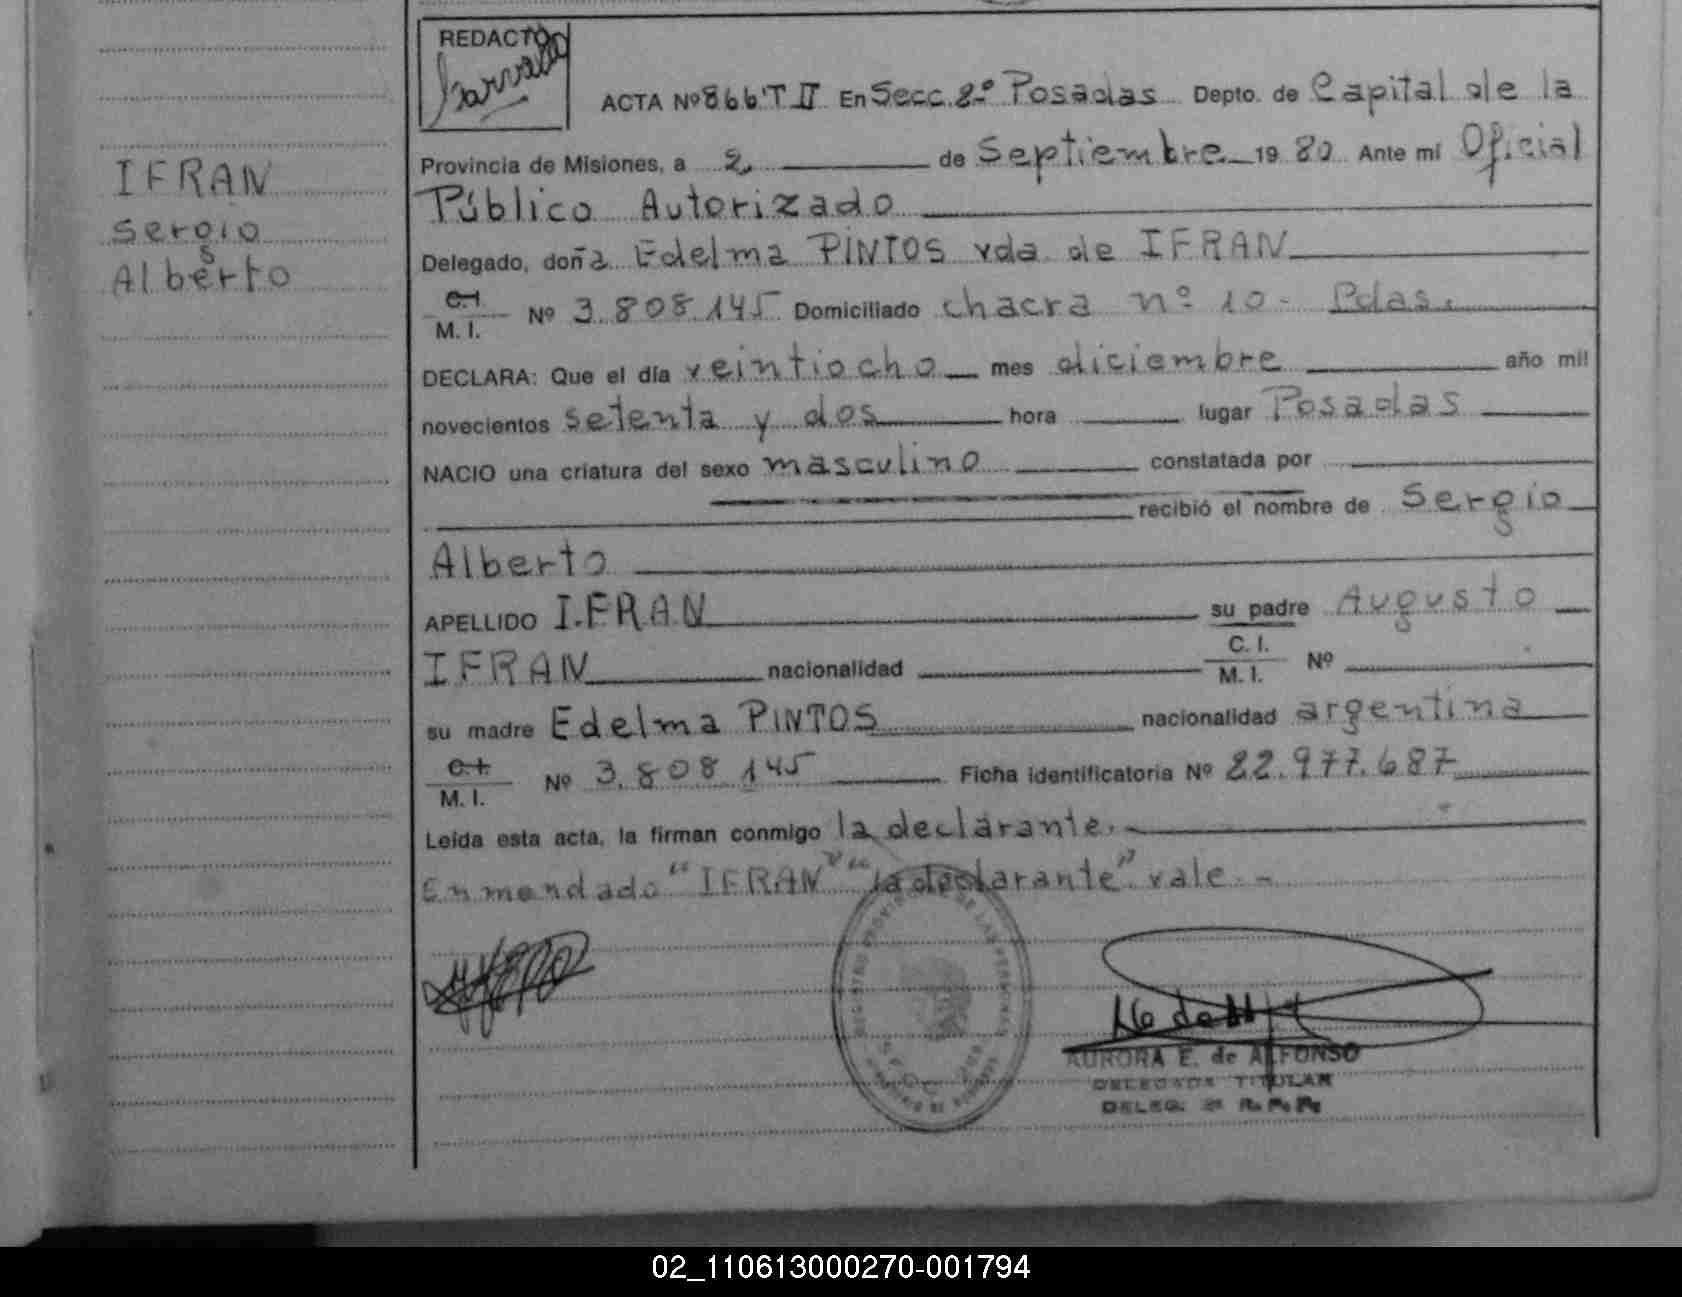 IFRAN
Sergio
Alberto
REDACTO
ACTA Nº 866 T II En Secc. 2º Posadas Depto. de Capital de la
Provincia de Misiones, a 2 de Septiembre 19 80 Ante mi Oficial
Público Autorizado
Delegado, doña Edelma PINTOS vda. de IFRAN
C.I.
M. I. Nº 3.808.145 Domiciliado chacra nº 10 - Pdas.
DECLARA: Que el día veintiocho mes diciembre año mil
novecientos setenta y dos hora lugar Posadas
NACIO una criatura del sexo masculino constatada por
recibió el nombre de Sergio
Alberto
APELLIDO IFRAN su padre Augusto
IFRAN nacionalidad C. I. M. I. Nº
su madre Edelma PINTOS nacionalidad argentina
C.I.
M. I. Nº 3.808.145 Ficha identificatoria Nº 22.977.687
Leída esta acta, la firman conmigo la declarante. -
Enmendado "IFRAN" "la declarante" vale. -
REGISTRO PROVINCIAL DE LAS PERSONAS
AURORA E. de ALFONSO
DELEGADA TITULAR
DELEG. 2ª R.P.P.
02_110613000270-001794